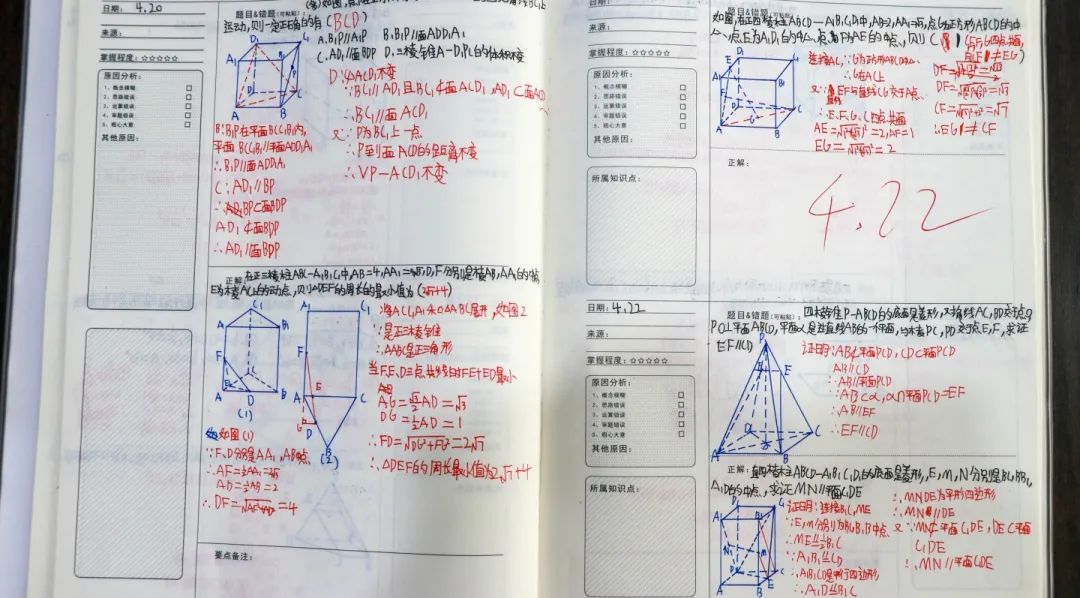 日期: 4.20
来源:
掌握程度: ☆☆☆☆☆
原因分析:
1、概念模糊 □
2、思路错误 □
3、运算错误 □
4、审题错误 □
5、粗心大意 □
其他原因:
题目&错题(可粘贴):
运动,则一定正确的有(BCD)
A.B₁P//A₁P B.B₁P//面ADD₁A₁
C.AD₁//面BDP D.三棱锥A-D₁PC的体积不变
D:∵ACD₁不变
∵BC₁//AD₁且BC₁⊄面ACD₁,AD₁⊂面ACD₁
∴BC₁//面ACD₁
又∵P为BC₁上一点
∴P到面ACD₁的距离不变
∴VP-ACD₁不变
B:B₁P在平面BCC₁B₁内,
平面BCC₁B₁//平面ADD₁A₁
∴B₁P//面ADD₁A₁
C:AD₁//BP
BP⊂面BDP
AD₁⊄面BDP
∴AD₁//面BDP
正解:
在正三棱柱ABC-A₁B₁C₁中,AB=4,AA₁=4√3,D,F分别是棱AB,AA₁的中点,
E为棱AC上的动点,则△DEF的周长的最小值为(2√7+4)
将ACC₁A₁和△ABC展开,如图2
∵是正三棱柱
∴△ABC是正三角形
当F,E,D三点共线时FE+ED最小
AG=√3/2AD=√3
DG=1/2AD=1
∴FD=√DG²+FG²=2√7
∴△DEF的周长最小值为2√7+4
(1)
(2)
如图(1)
∵F、D分别是AA₁,AB中点
∴AF=1/2AA₁=2√3
AD=1/2AB=2
∴DF=√AF²+AD²=4
要点备注:
来源:
掌握程度: ☆☆☆☆☆
原因分析:
1、概念模糊 □
2、思路错误 □
3、运算错误 □
4、审题错误 □
5、粗心大意 □
其他原因:
所属知识点:
题目&错题(可粘贴):
如图,在正四棱柱ABCD-A₁B₁C₁D₁中,AB=2,AA₁=√3,点G为正方形ABCD的中
心,点E为A₁D₁的中点,点F为AE的中点,则(
连接AC,∵G为正方形ABCD中心
∴G在AC上
又∵EF与直线CG交于点A
∴E、F、G、C四点共面
EG=√(√3)²+1²=2
∴EG≠CF
正解:
4.22
日期: 4.22
来源:
掌握程度: ☆☆☆☆☆
原因分析:
1、概念模糊 □
2、思路错误 □
3、运算错误 □
4、审题错误 □
5、粗心大意 □
其他原因:
所属知识点:
题目&错题(可粘贴):
四棱锥P-ABCD的底面是菱形,对角线AC,BD交于点O
PO⊥平面ABCD,平面α是过直线AB的一个平面,与棱PC,PD交于点E,F,求证
EF//CD
证明:AB⊄平面PCD,CD⊂平面PCD
AB//CD
∴AB//平面PCD
∵AB⊂α,α∩平面PCD=EF
∴AB//EF
∴EF//CD
正解:
直四棱柱ABCD-A₁B₁C₁D₁的底面是菱形,E,M,N分别是BC,BB₁,
A₁D的中点,求证MN//平面C₁DE
证明:连接B₁C,ME
∵E,M分别为BC,BB₁中点
∴ME∥=1/2B₁C
∵A₁B₁∥=CD
∴A₁B₁CD是平行四边形
∴A₁D∥=B₁C
∴MNDE为平行四边形
∴MN//DE
又∵MN⊄平面C₁DE,DE⊂平面
C₁DE
∴MN//平面C₁DE